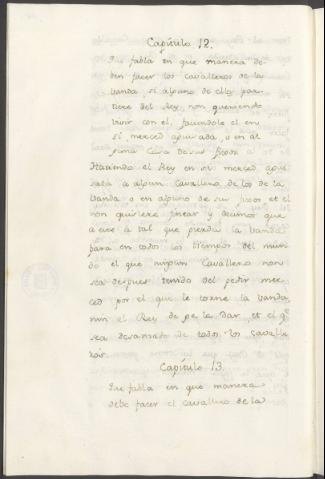 Capítulo 12.
Que fabla en que manera de-
ben facer los cavalleros de la
banda, si alguno de ellos par-
tiere del Rey, non queriendo
vivir con el, faciendole el en
sí merced aguisada, o en al
guna Casa de sus fijos
Haciendo el Rey en sí merced agui
sada a algun Cavallero de los de la
banda o en alguno de sus fijos et el
non quisiere fincar y decimos que
a este à tal que pierda la banda
para en todos los tiempos del mun
do et que ningun Cavallero non
sea despues tenido del pedir mer-
ced por el que le torne la banda,
nin el Rey de ge la dar, et el q.e
sea desamado de todos los cavalle
ros.
Capítulo 13.
Que fabla en que manera
debe facer el cavallero de la